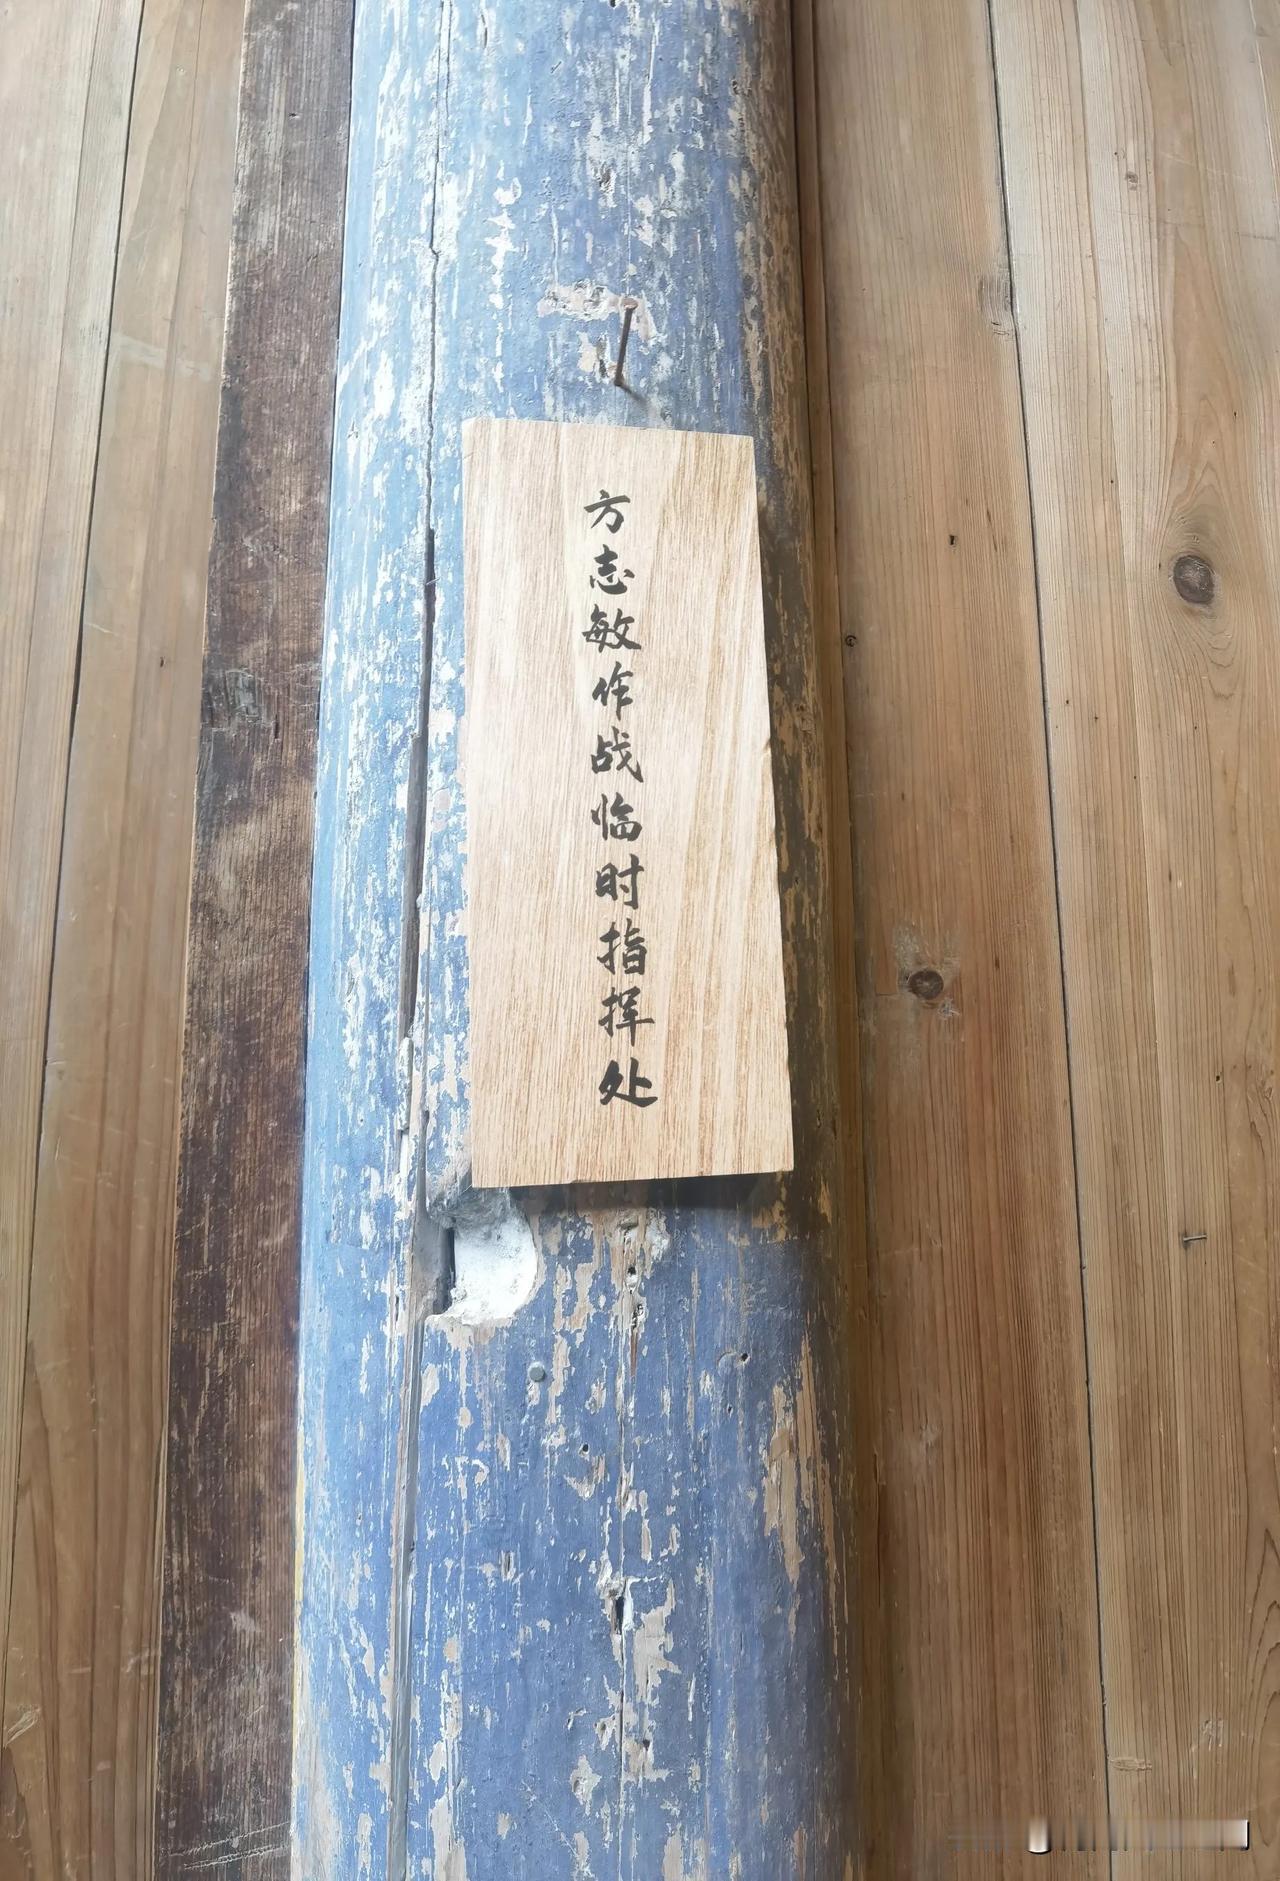 方志敏作战临时指挥处